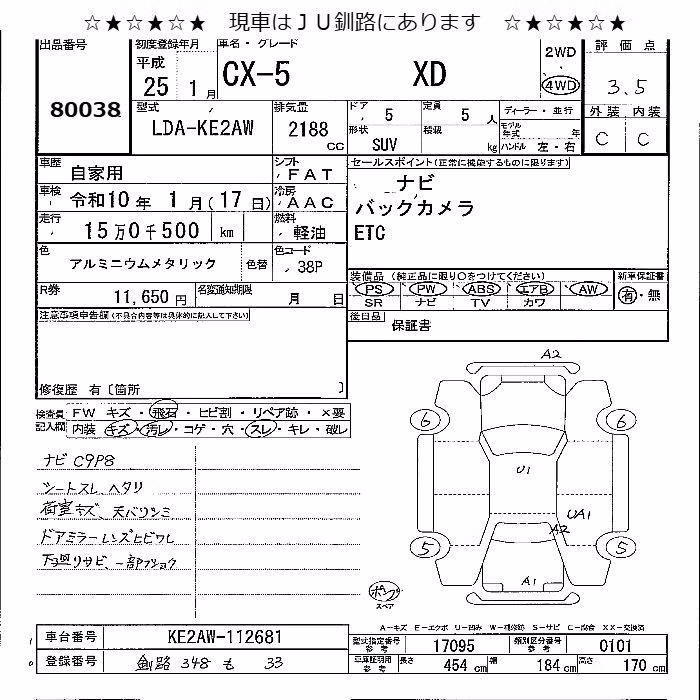 ☆★☆★☆★ 現車はＪＵ釧路にあります ☆★☆★☆★
出品番号 初度登録年月 車名・グレード 2WD 評価点
80038 平成 25 1月 CX-5 XD 4WD 3.5
型式 排気量 ドア 定員 ディーラー・並行 外装 内装
LDA-KE2AW 2188 CC 5 5 人 モデル年式 年 C C
形状 SUV 積載 kg ハンドル 左・右
車歴 自家用 シフト FAT セールスポイント(正常に機能するものに限ります)
車検 令和10年 1月(17日) 冷房 AAC ナビ
走行 15万0千500 km 燃料 軽油 バックカメラ
色 アルミニウムメタリック 色替 色コード 38P ETC
R券 11,650円 名変通知期限 月 日 装備品 (純正品に限り○をつけてください) 新車保証書
PS PW ABS エアB AW 有・無
SR ナビ TV カワ
注意事項申告欄(不具合内容等は具体的に記入して下さい) 後日品 保証書
修復歴 有〔箇所 〕
検査員記入欄 FW キズ・飛石・ヒビ割・リペア跡・×要
内装 キズ・汚レ・コゲ・穴・スレ・キレ・破レ
ナビ C9P8
シートスレ ヘタリ
荷室キズ、天バリシミ
ドアミラーレンズヒビワレ
下廻リサビ、一部フショク
A2
6 6
U1
UA1
A2
5 5
A1
スペア
A－キズ E－エクボ U－凹み W－補修跡 S－サビ C－腐食 XX－交換済
車台番号 KE2AW-112681 型式指定番号 参考 17095 類別区分番号 参考 0101
登録番号 釧路 348 も 33 車庫証明用 参考 長さ 454 cm 幅 184 cm 高さ 170 cm